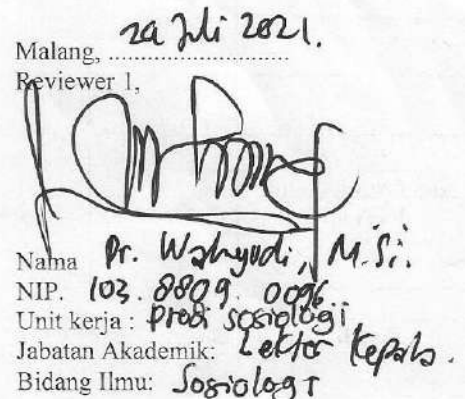 Malang, 29 Juli 2021.
Reviewer 1,
Nama Dr. Wahyudi, M.Si.
NIP. 103.8809.0096
Unit kerja : Prodi Sosiologi
Jabatan Akademik: Lektor Kepala.
Bidang Ilmu: Sosiologi